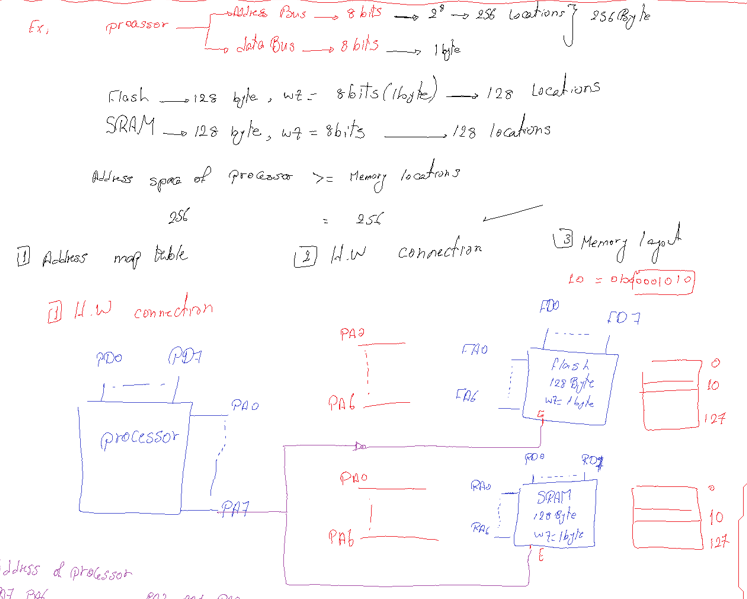 Ex, processor → Address Bus → 8 bits → 2⁸ → 256 locations } 256 Byte
→ data Bus → 8 bits → 1 byte
Flash → 128 byte, wz = 8bits (1byte) → 128 locations
SRAM → 128 byte, wz = 8bits → 128 locations
Address space of processor >= Memory locations
256 = 256
1 Address map table 2 H.W connection 3 Memory layout
10 = 0b00001010
1 H.W connection
FD0 FD7
PD0 PD7
PA0
PA6
FA0
FA6
Flash
128 Byte
wz=1byte
E
0
10
127
processor
PA0
PA7
PA0
PA6
RD0 RD7
RA0
RA6
SRAM
128 Byte
wz=1byte
E
0
10
127
ddress of processor
A7 PA6